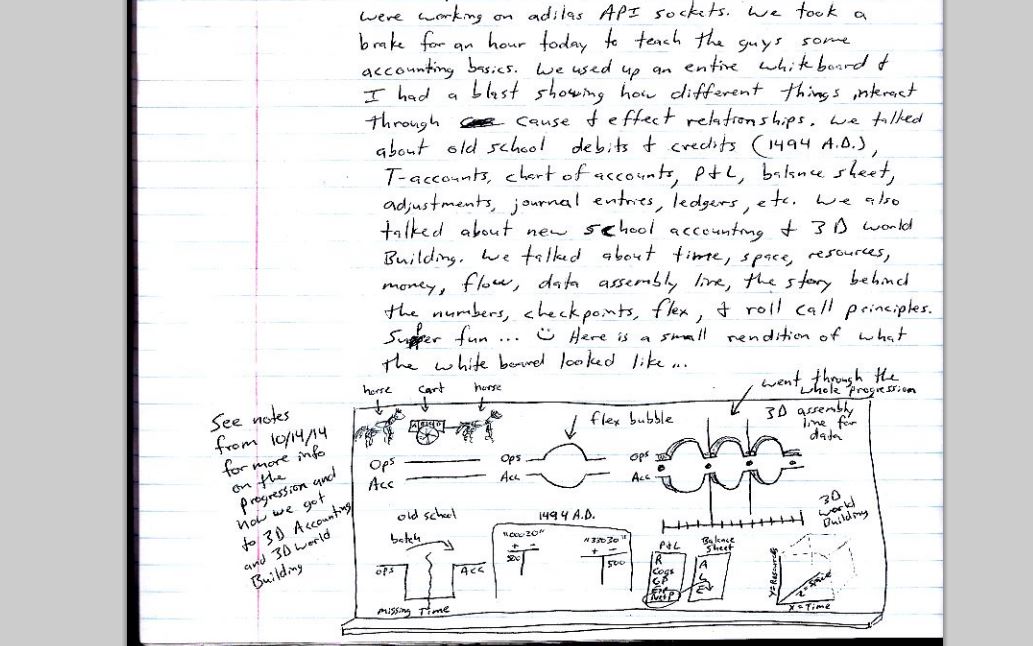 were working on adilas API sockets. We took a
brake for an hour today to teach the guys some
accounting basics. We used up an entire whiteboard &
I had a blast showing how different things interact
through cause & effect relationships. We talked
about old school debits & credits (1494 A.D.),
T-accounts, chart of accounts, P&L, balance sheet,
adjustments, journal entries, ledgers, etc. We also
talked about new school accounting & 3D world
Building. We talked about time, space, resources,
money, flow, data assembly line, the story behind
the numbers, checkpoints, flex, & roll call principles.
Super fun... Here is a small rendition of what
the white board looked like...
See notes
from 10/14/14
for more info
on the
progression and
how we got
to 3D Accounting
and 3D world
Building
horse cart horse
went through the
whole progression
flex bubble
3D assembly
line for
data
Ops
Acc
Ops
Acc
Ops
Acc
3D
world
Building
old school
batch
ops Acc
missing Time
1494 A.D.
+ -
500
"33030"
+ -
500
P&L
R
Cogs
GP
Exp
Net P
Balance
Sheet
A
L
E
Y=Resources
Z=Space
X=Time